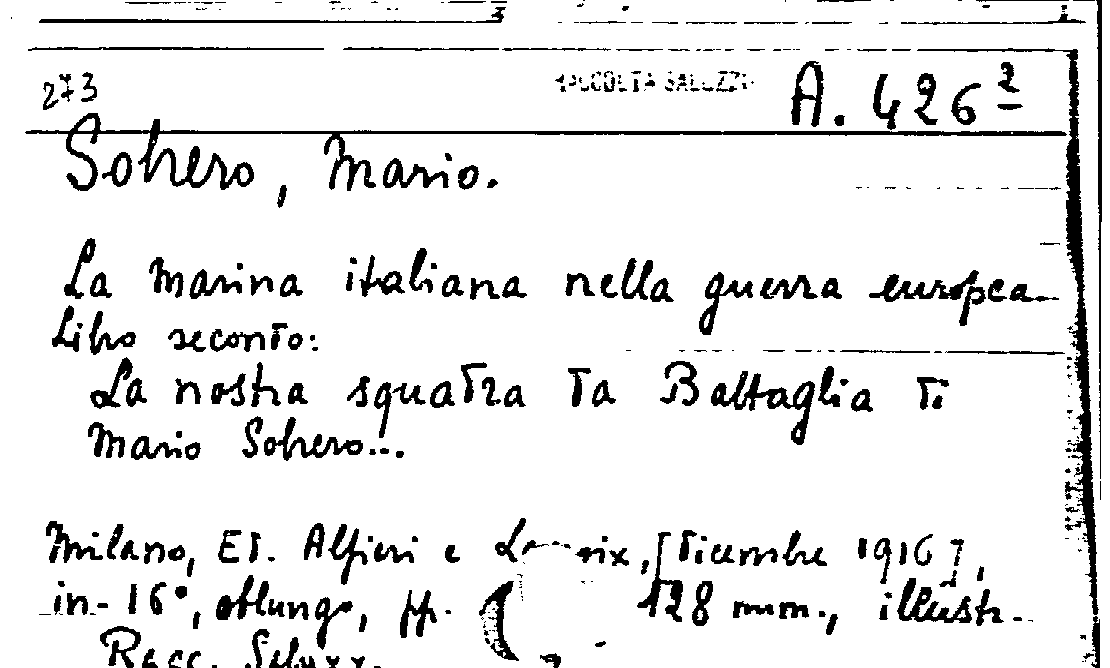 273 RACCOLTA SALUZZO A. 426²
Sobrero, Mario.
La marina italiana nella guerra europea.
Libro secondo:
La nostra squadra da Battaglia di
Mario Sobrero...
Milano, Ed. Alfieri e [dicembre 1916],
in-16°, oblungo, pp. 128 num., illustr.
Racc. Saluzz.